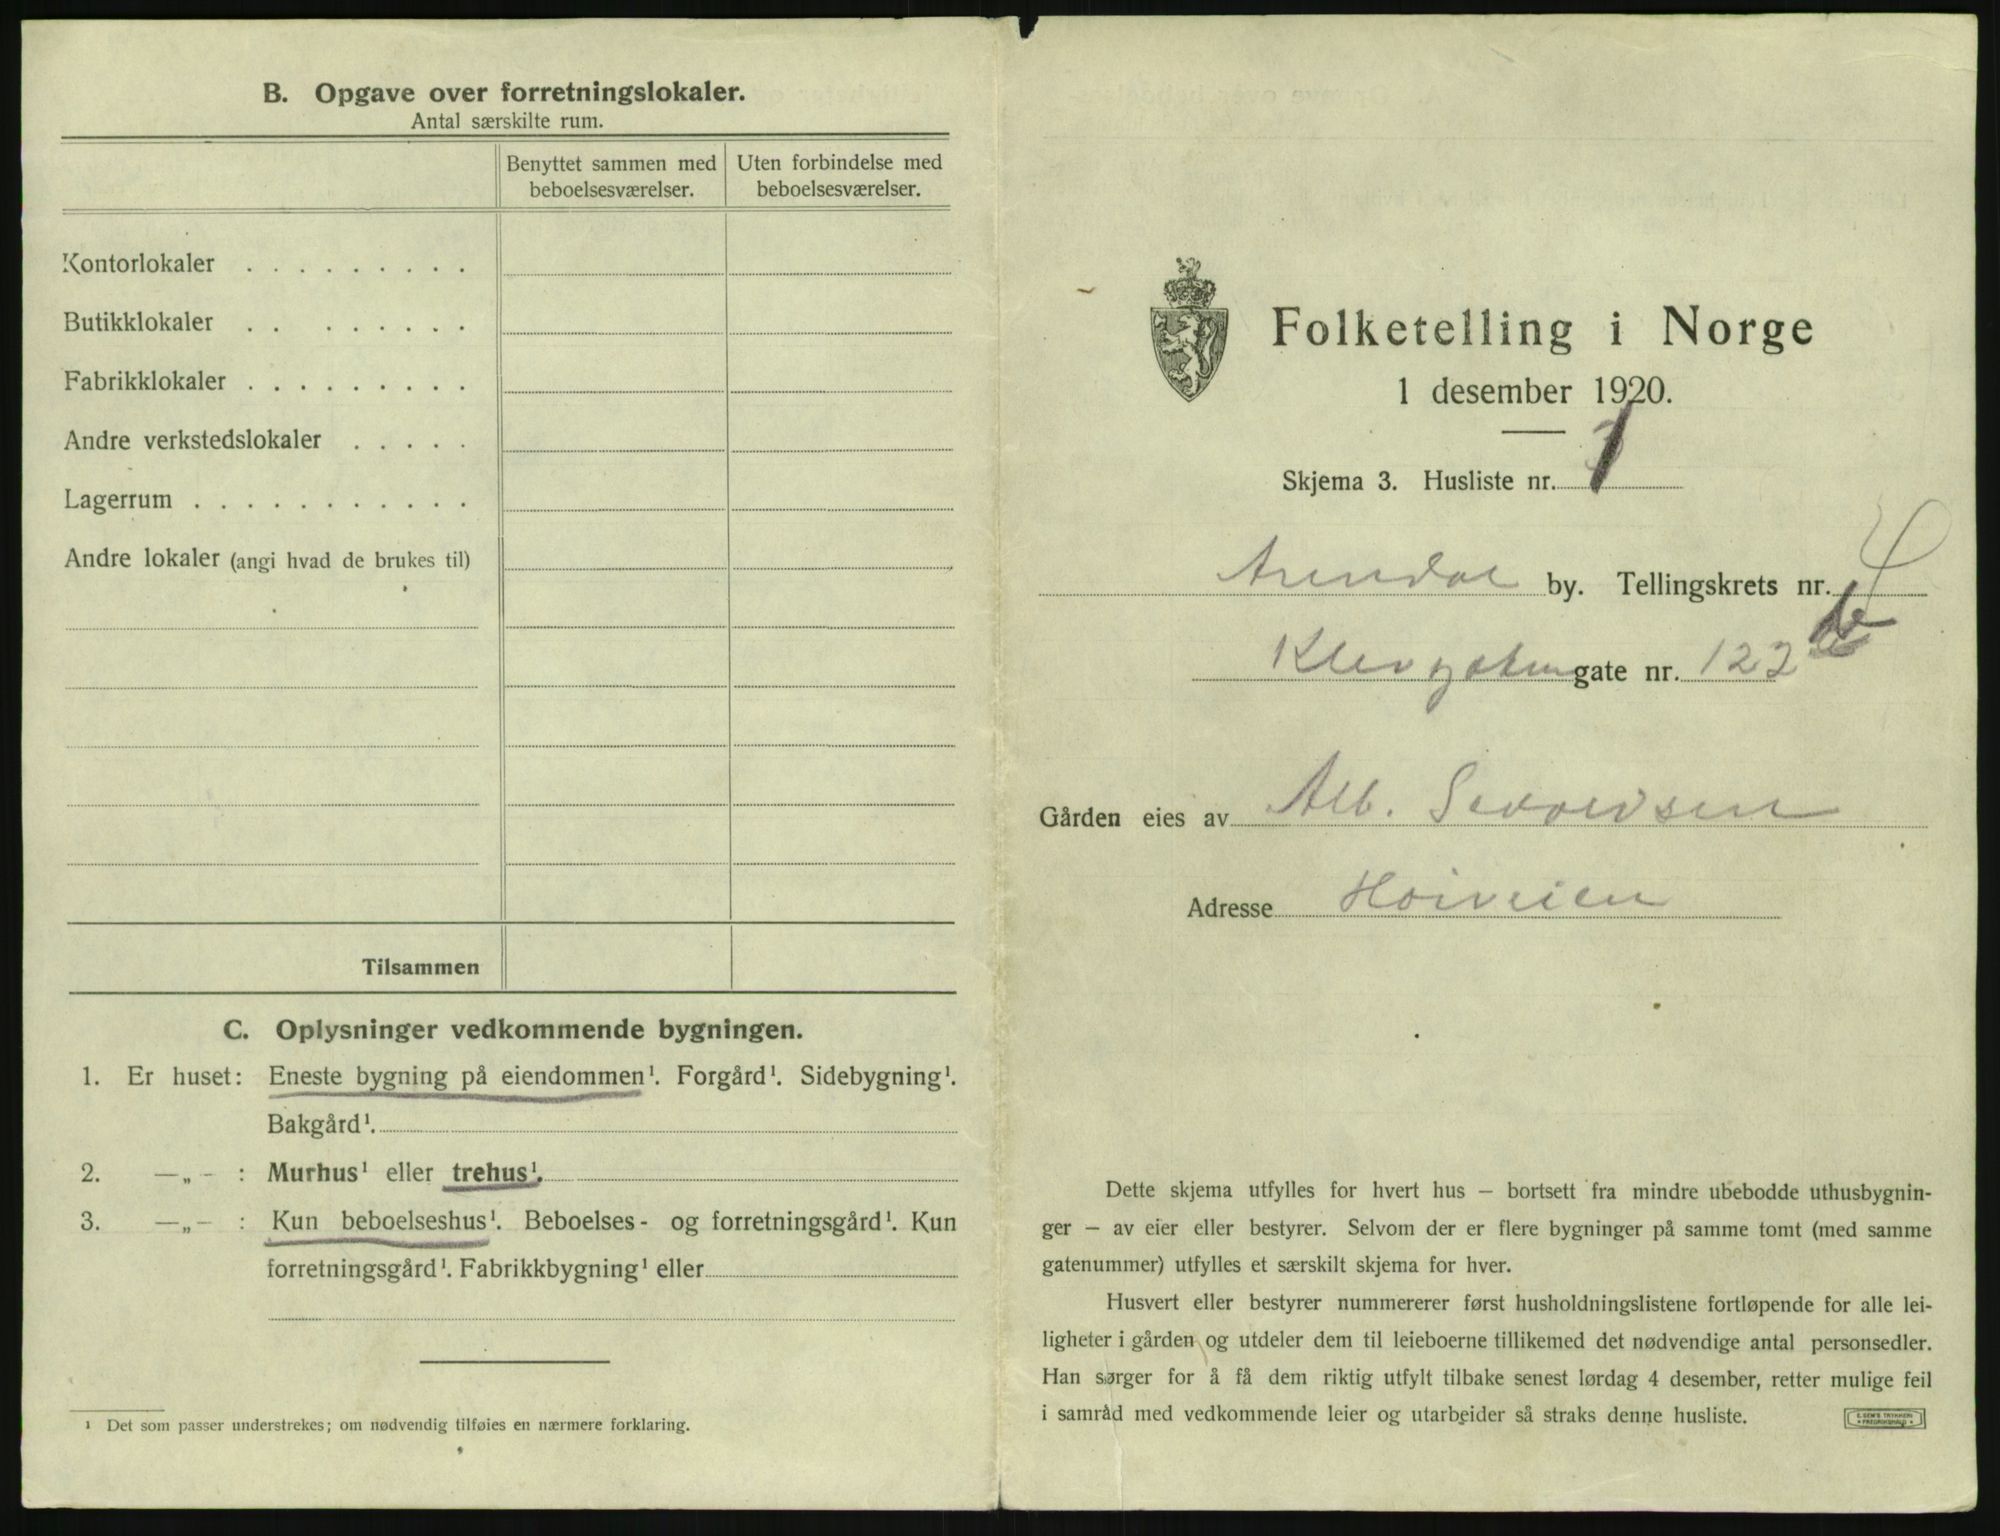 B. Opgave over forretningslokaler.
Antal særskilte rum.
Benyttet sammen med beboelsesværelser.
Uten forbindelse med beboelsesværelser.
Kontorlokaler . . . . . . . . .
Butikklokaler . . . . . . . .
Fabrikklokaler . . . . . . . . .
Andre verkstedslokaler . . . . .
Lagerrum . . . . . . . . . . .
Andre lokaler (angi hvad de brukes til)
Tilsammen
C. Oplysninger vedkommende bygningen.
1. Er huset: Eneste bygning på eiendommen¹. Forgård¹. Sidebygning¹.
Bakgård¹.
2. —„- : Murhus¹ eller trehus¹.
3. —„- : Kun beboelseshus¹. Beboelses- og forretningsgård¹. Kun
forretningsgård¹. Fabrikkbygning¹ eller
¹ Det som passer understrekes; om nødvendig tilføies en nærmere forklaring.
Folketelling i Norge
1 desember 1920.
Skjema 3. Husliste nr.
Arendal by. Tellingskrets nr. 4
gate nr. 122 b
Gården eies av Alb.
Adresse Hoiveien
Dette skjema utfylles for hvert hus – bortsett fra mindre ubebodde uthusbygnin-
ger – av eier eller bestyrer. Selvom der er flere bygninger på samme tomt (med samme
gatenummer) utfylles et særskilt skjema for hver.
Husvert eller bestyrer nummererer først husholdningslistene fortløpende for alle lei-
ligheter i gården og utdeler dem til leieboerne tillikemed det nødvendige antal personsedler.
Han sørger for å få dem riktig utfylt tilbake senest lørdag 4 desember, retter mulige feil
i samråd med vedkommende leier og utarbeider så straks denne husliste.